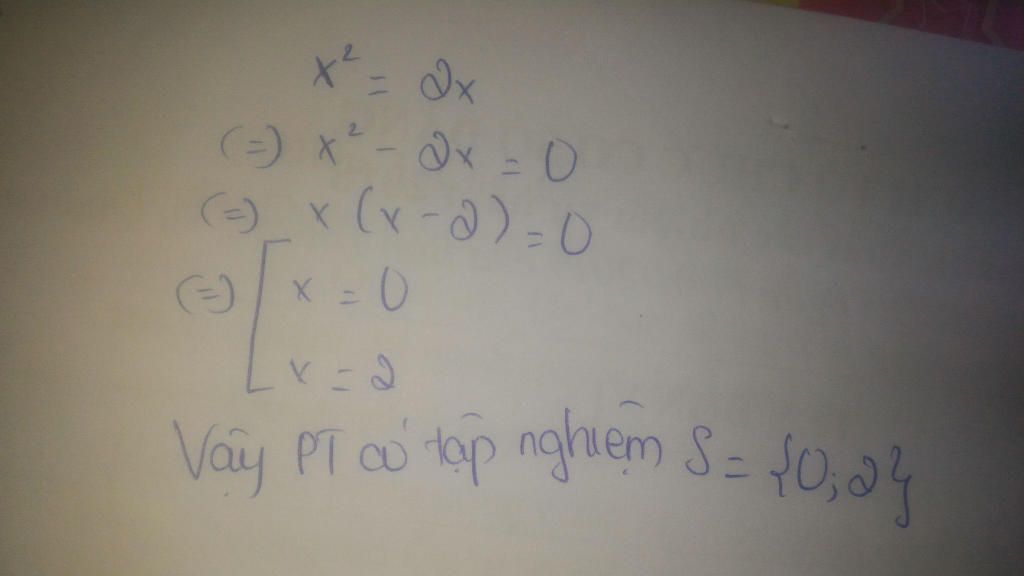 x² = 2x
(=) x² - 2x = 0
(=) x (x - 2) = 0
(=) [ x = 0
x = 2
Vậy PT có tập nghiệm S = {0; 2}